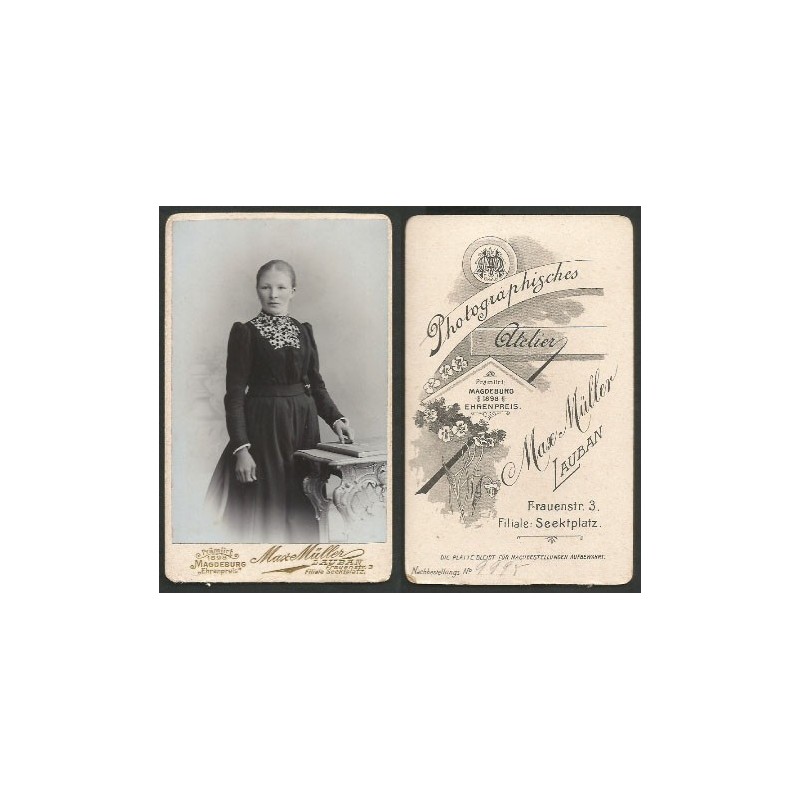 Prämiirt
1898
MAGDEBURG
"Ehrenpreis"
Max Müller
LAUBAN
Frauenstr. 3
Filiale Seektplatz.
Photographisches
Atelier
Prämiirt
MAGDEBURG
1898
EHRENPREIS.
Max Müller
LAUBAN
Frauenstr. 3.
Filiale: Seektplatz.
DIE PLATTE BLEIBT FÜR NACHBESTELLUNGEN AUFBEWAHRT.
Nachbestellungs No 9985